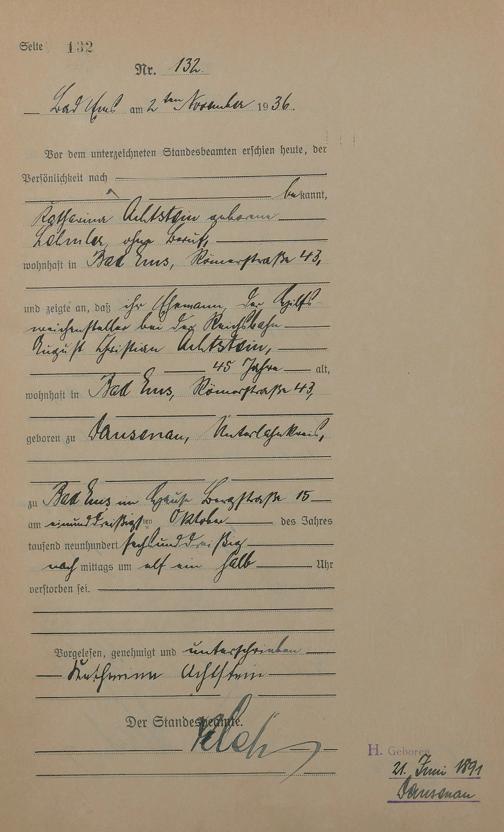 Seite 132
Nr. 132.
Bad Ems am 2ten November 1936.
Vor dem unterzeichneten Standesbeamten erschien heute, der
Persönlichkeit nach
bekannt,
Katharina Achtstein geborene
ohne Beruf,
wohnhaft in Bad Ems, Römerstraße 43,
und zeigte an, daß ihr Ehemann, der Hilfs-
weichensteller bei der Reichsbahn
August Christian Achtstein,
45 Jahre alt,
wohnhaft in Bad Ems, Römerstraße 43,
geboren zu Dausenau, Unterlahnkreis,
zu Bad Ems im Hause Bergstraße 15
am einunddreißigsten Oktober des Jahres
tausend neunhundert sechsunddreißig
nachmittags um elf ein halb Uhr
verstorben sei.
Vorgelesen, genehmigt und unterschrieben
Katharina Achtstein
Der Standesbeamte.
H. Geboren
21. Juni 1891
Dausenau